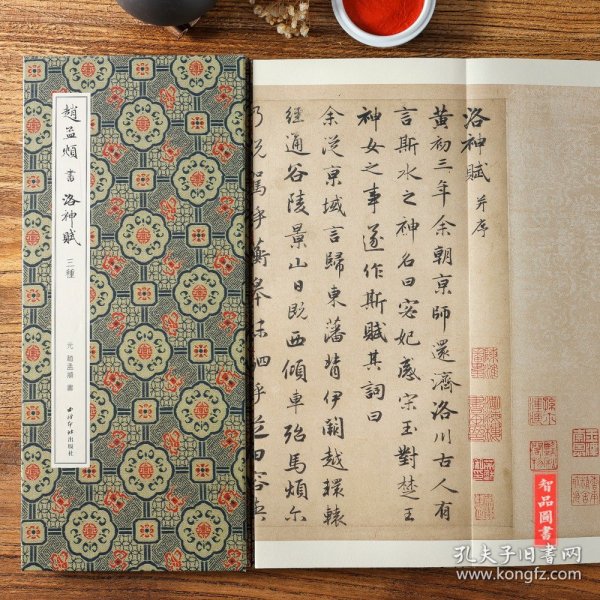 趙孟頫書 洛神賦 三種
元 趙孟頫 書
西泠印社出版社
洛神賦 并序
黄初三年余朝京師還濟洛川古人有
言斯水之神名曰宓妃感宋玉對楚王
神女之事遂作斯賦其詞曰
余從京域言歸東藩背伊闕越轘轅
經通谷陵景山日既西傾車殆馬煩尓
乃税駕乎蘅皋秣駟乎芝田容與
智品圖書
孔夫子旧书网
www.kongfz.com